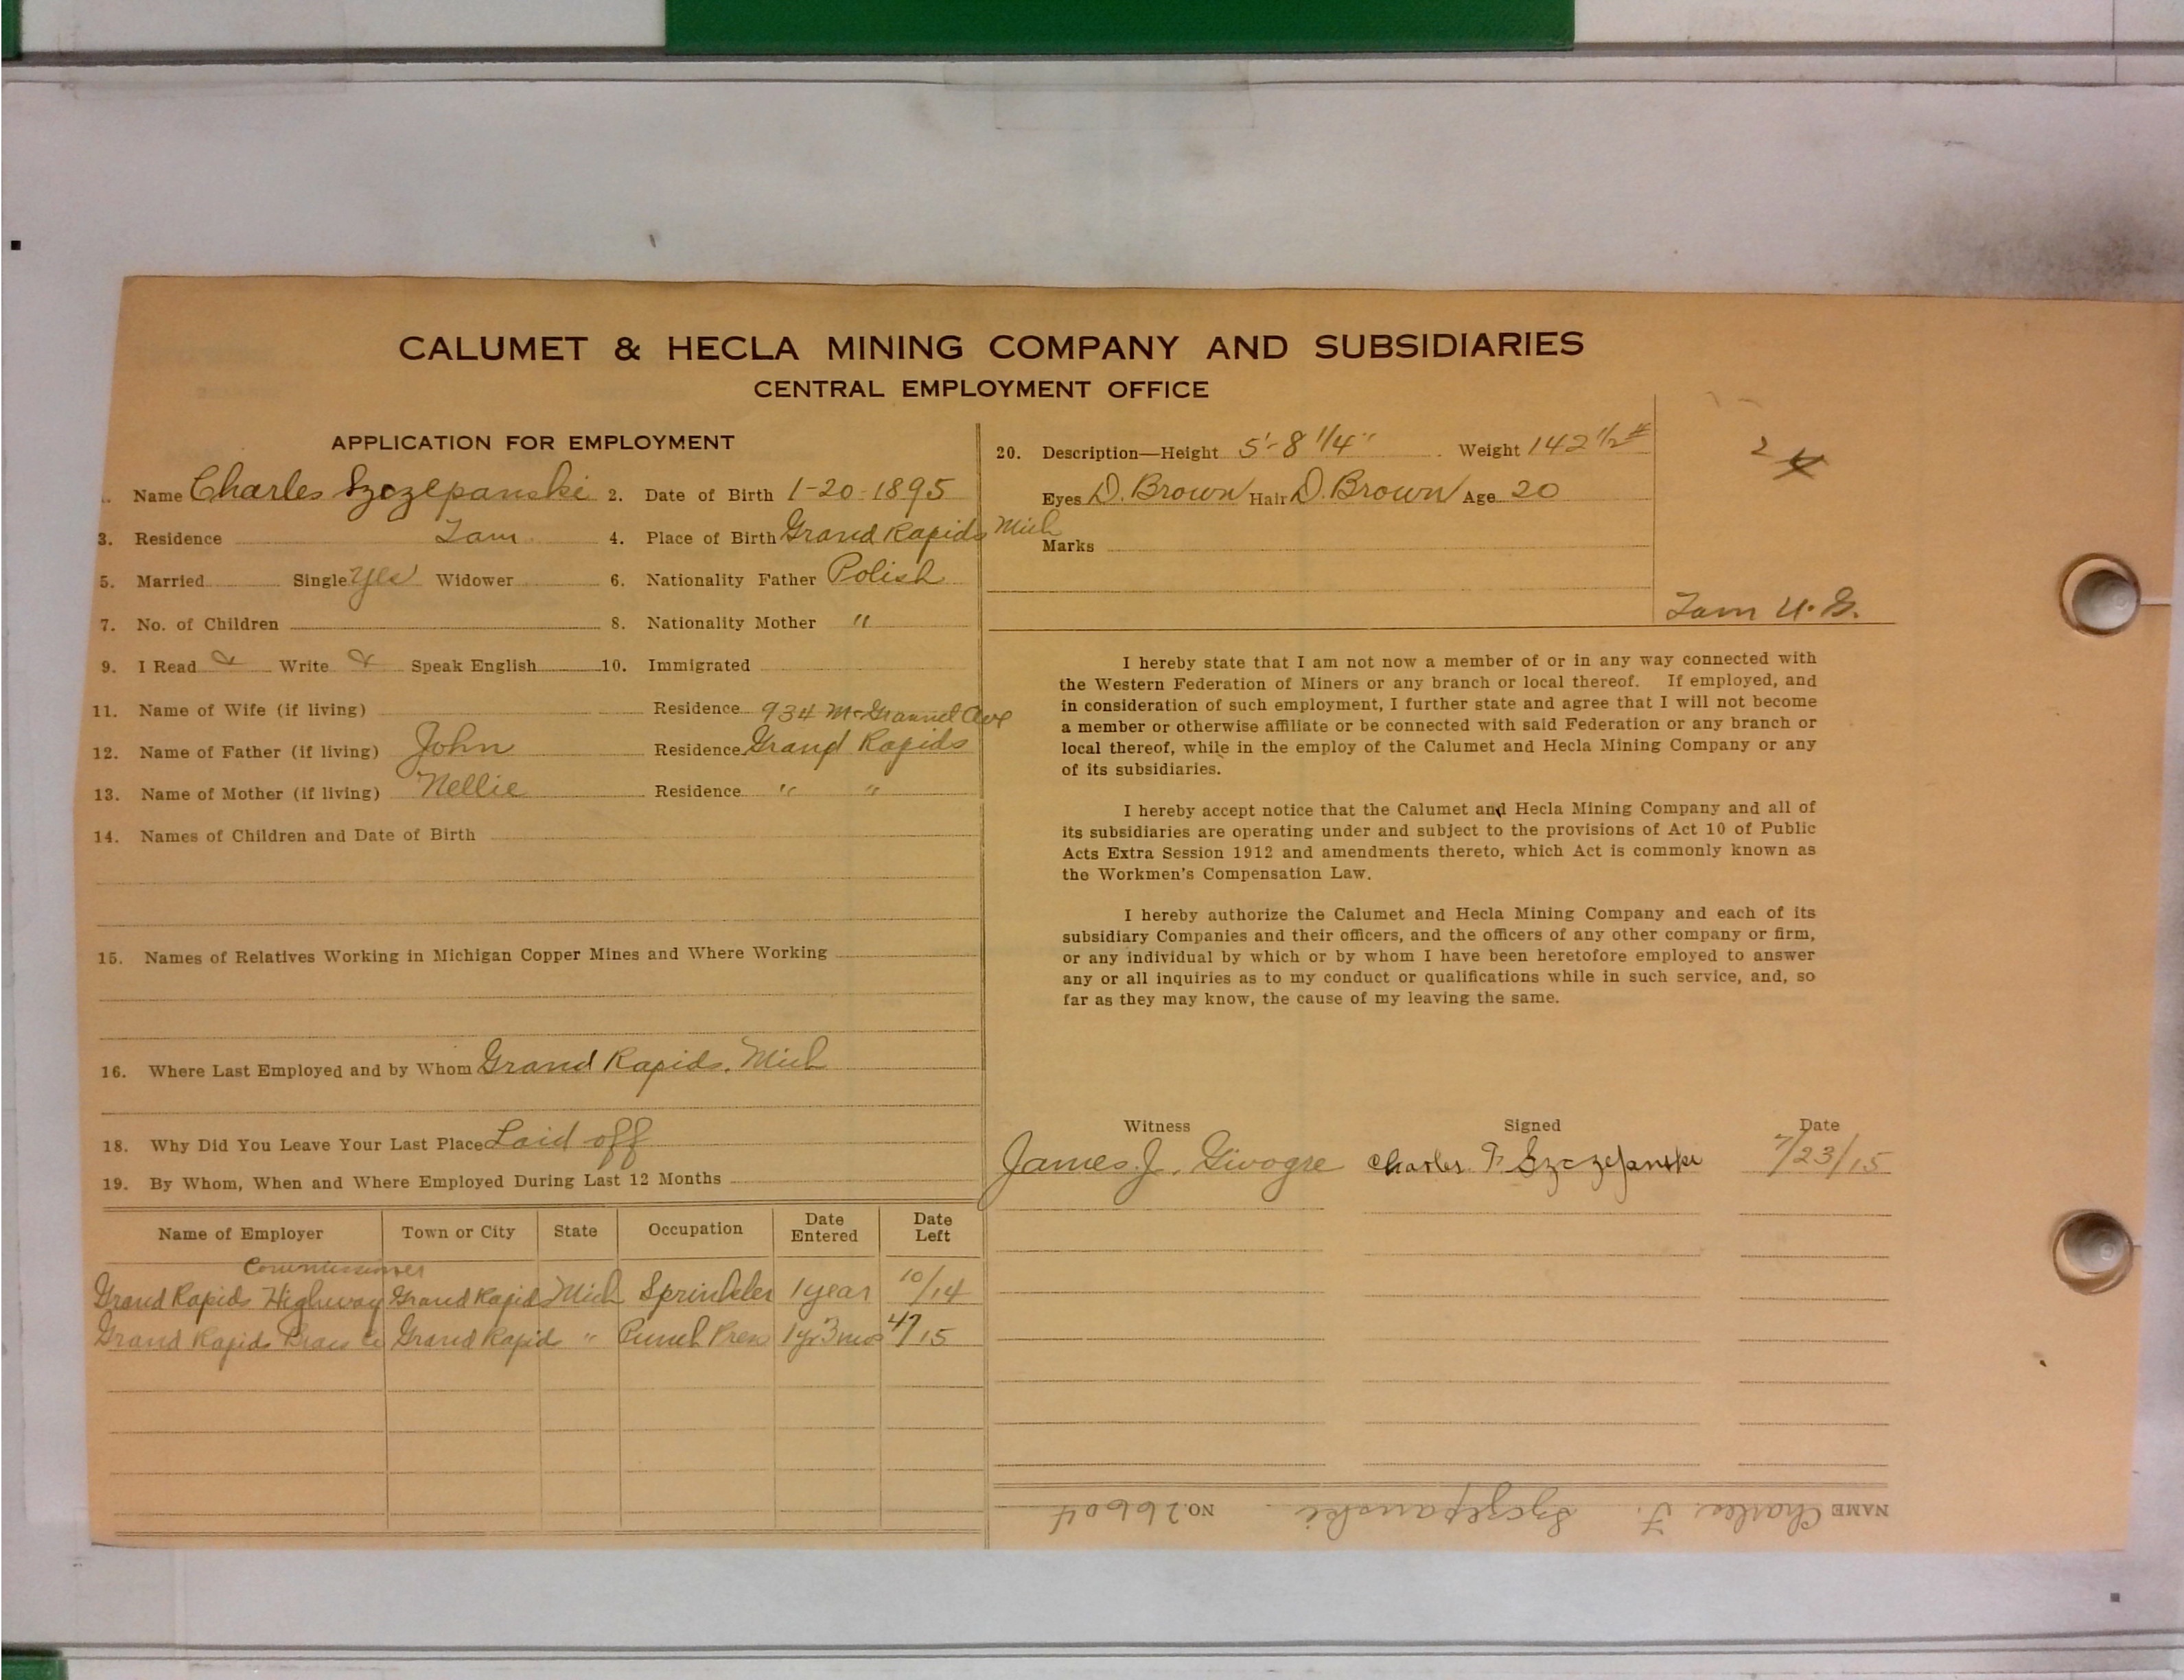 CALUMET & HECLA MINING COMPANY AND SUBSIDIARIES
CENTRAL EMPLOYMENT OFFICE
APPLICATION FOR EMPLOYMENT
Name Charles Szczepanski 2. Date of Birth 1-20-1895
3. Residence Tam 4. Place of Birth Grand Rapids Mich
5. Married Single Yes Widower 6. Nationality Father Polish
7. No. of Children 8. Nationality Mother "
9. I Read Write Speak English 10. Immigrated
11. Name of Wife (if living) Residence 934 McGrannel Ave
12. Name of Father (if living) John Residence Grand Rapids
13. Name of Mother (if living) Nellie Residence " "
14. Names of Children and Date of Birth
15. Names of Relatives Working in Michigan Copper Mines and Where Working
16. Where Last Employed and by Whom Grand Rapids, Mich
18. Why Did You Leave Your Last Place Laid off
19. By Whom, When and Where Employed During Last 12 Months
Name of Employer Town or City State Occupation Date Entered Date Left
Commissioner
Grand Rapids Highway Grand Rapids Mich Sprinkler 1 year 10/14
Grand Rapids Brass Co Grand Rapid " Punch Press 1 yr 3 mos /15
20. Description—Height 5'-8 1/4" Weight 142 1/2 #
Eyes D. Brown Hair D. Brown Age 20
Marks
2
Tam U.G.
I hereby state that I am not now a member of or in any way connected with
the Western Federation of Miners or any branch or local thereof. If employed, and
in consideration of such employment, I further state and agree that I will not become
a member or otherwise affiliate or be connected with said Federation or any branch or
local thereof, while in the employ of the Calumet and Hecla Mining Company or any
of its subsidiaries.
I hereby accept notice that the Calumet and Hecla Mining Company and all of
its subsidiaries are operating under and subject to the provisions of Act 10 of Public
Acts Extra Session 1912 and amendments thereto, which Act is commonly known as
the Workmen's Compensation Law.
I hereby authorize the Calumet and Hecla Mining Company and each of its
subsidiary Companies and their officers, and the officers of any other company or firm,
or any individual by which or by whom I have been heretofore employed to answer
any or all inquiries as to my conduct or qualifications while in such service, and, so
far as they may know, the cause of my leaving the same.
Witness Signed Date
James J. Givogre Charles F. Szczepanski 7/23/15
NAME Charles F. Szczepanski NO. 26604